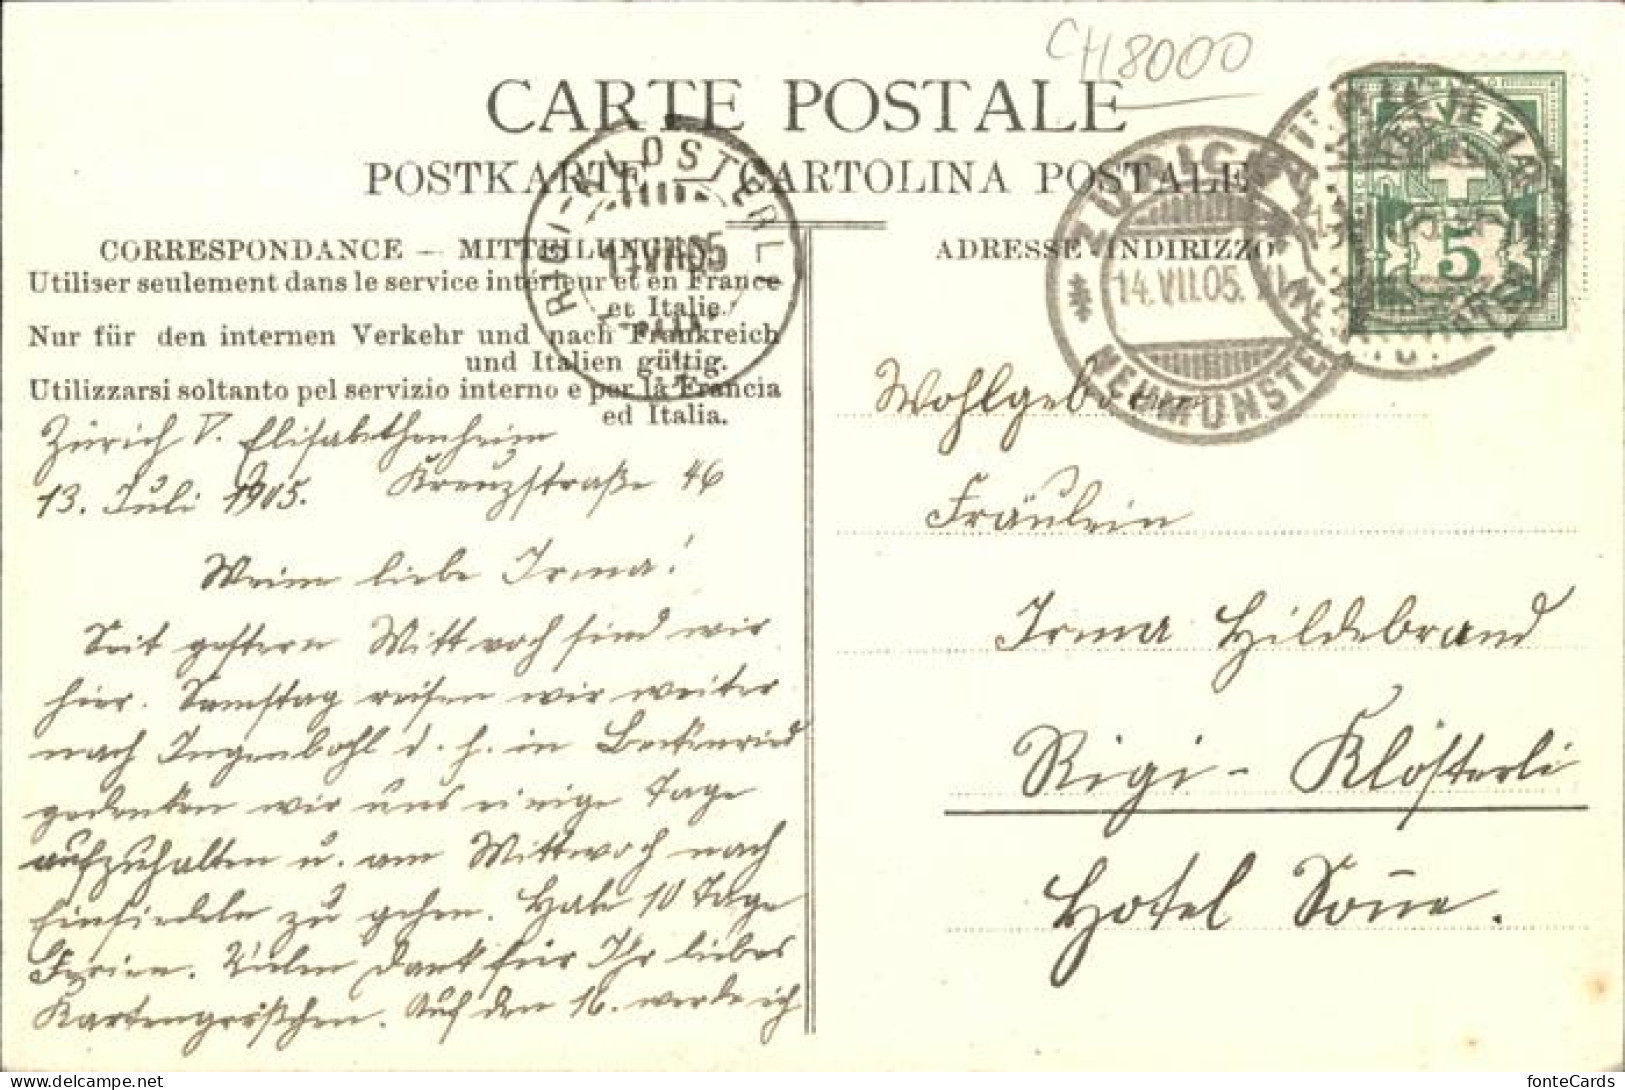 CH8000
CARTE POSTALE
POSTKARTE — CARTOLINA POSTALE
CORRESPONDANCE — MITTEILUNGEN
Utiliser seulement dans le service intérieur et en France
et Italie.
Nur für den internen Verkehr und nach Frankreich
und Italien gültig.
Utilizzarsi soltanto pel servizio interno e per la Francia
ed Italia.
RIGI-KLOSTERLI
14 VII 05
ADRESSE - INDIRIZZO
ZÜRICH
14. VII. 05.
NEUMÜNSTER
HELVETIA
5
Zürich V. Elisabethenheim
13. Juli 1905. Kreuzstraße 46
Meine liebe Irma!
Seit gestern Mittwoch sind wir
hier. Samstag reisen wir weiter
nach Ingenbohl d. h. in Beckenried
gedenken wir uns einige Tage
aufzuhalten u. am Mittwoch nach
Einsiedeln zu gehen. Habe 10 Tage
Ferien. Vielen Dank für Ihr liebes
Kartengrüßchen. Auf den 16. werde ich
Wohlgeboren
Fräulein
Irma Hildebrand
Rigi - Klösterli
Hotel Soñe.
fonteCards